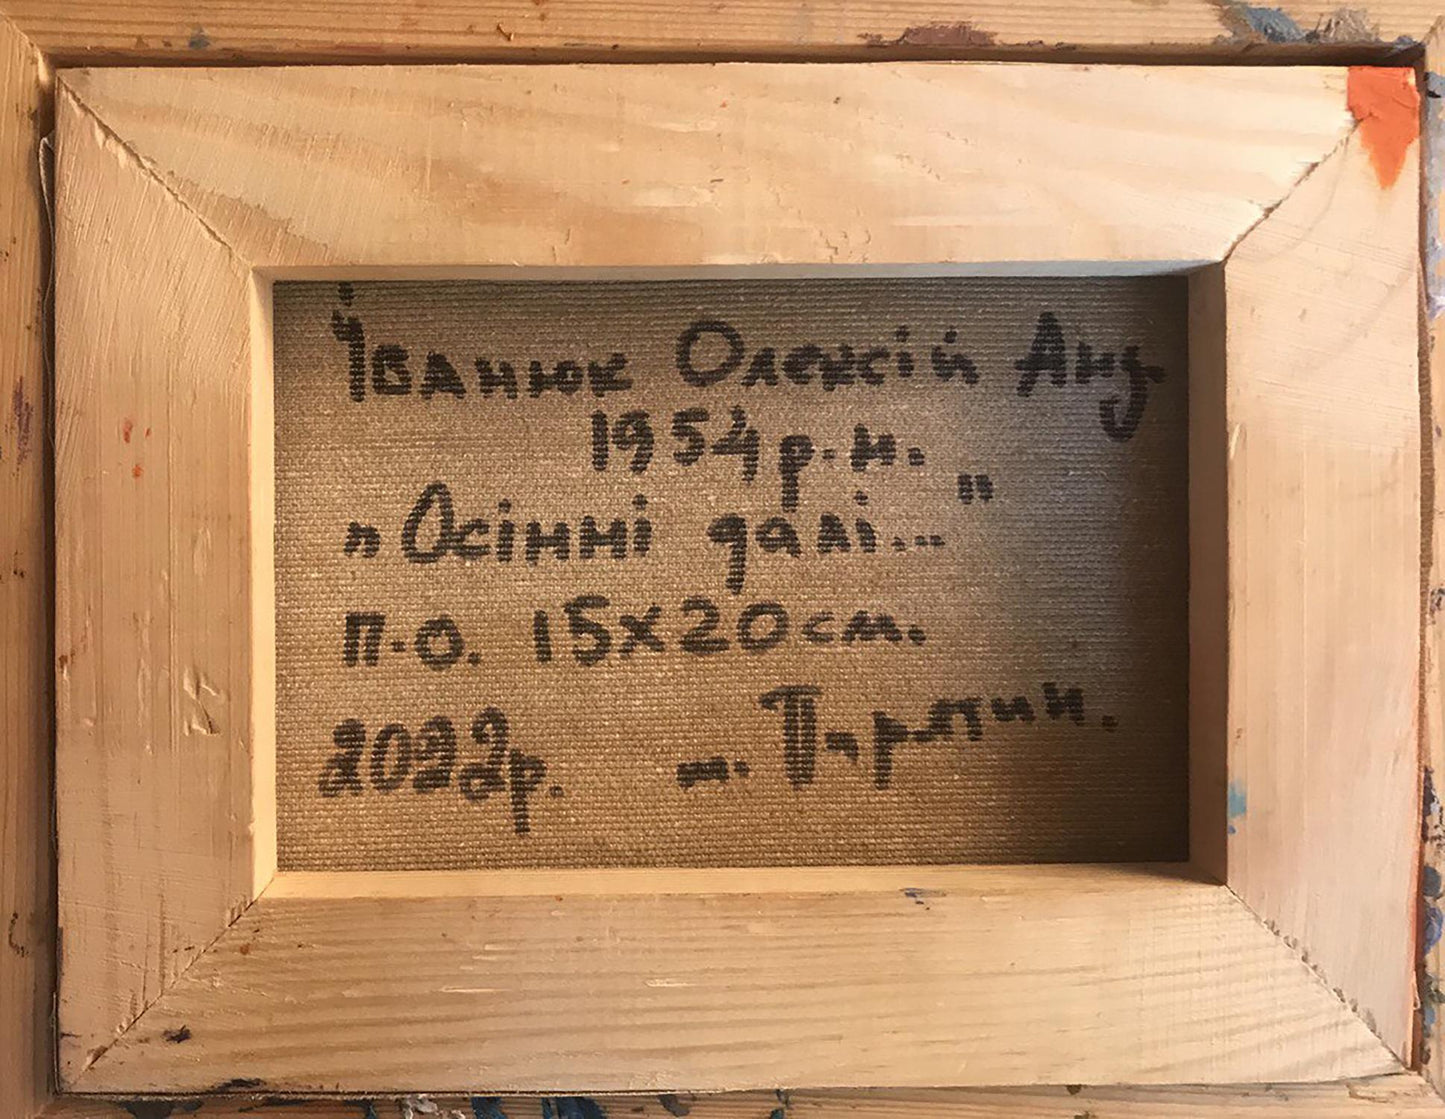 Іванюк Олексій Анд
1954 р.н.
„Осінні далі..."
п.о. 15х20см.
2022р. м. Пирятин.